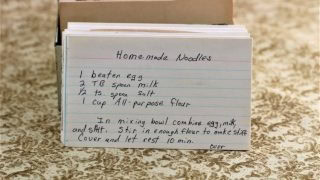 Homemade Noodles
1 beaten egg
2 TB spoon milk
1/2 ts. spoon Salt
1 cup All-purpose flour
In mixing bowl combine egg, milk,
and salt. Stir in enough flour to make stiff
Cover and let rest 10 min.
over